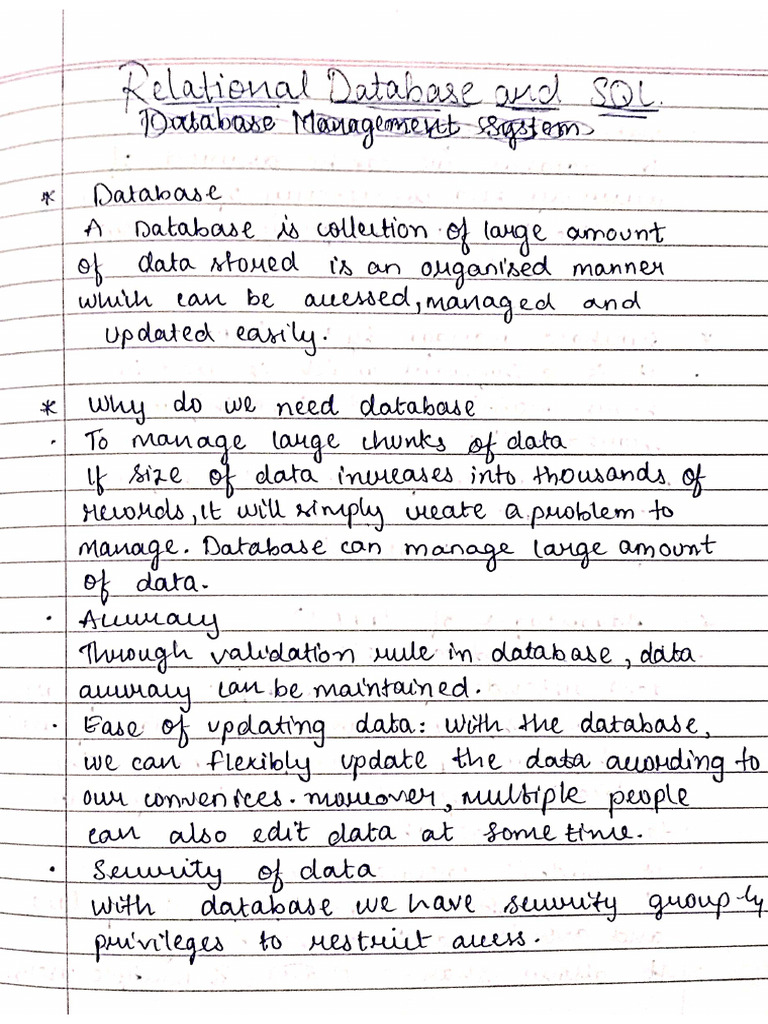 Relational Database and SQL.
Database Management System
* Database
A Database is collection of large amount
of data stored is an organised manner
which can be accessed, managed and
updated easily.
* Why do we need database
· To manage large chunks of data
If size of data increases into thousands of
records, it will simply create a problem to
manage. Database can manage large amount
of data.
· Accuracy
Through validation rule in database, data
accuracy can be maintained.
· Ease of updating data: with the database,
we can flexibly update the data according to
our convenices. moreover, multiple people
can also edit data at some time.
· Security of data
with database we have security group
privileges to restrict access.